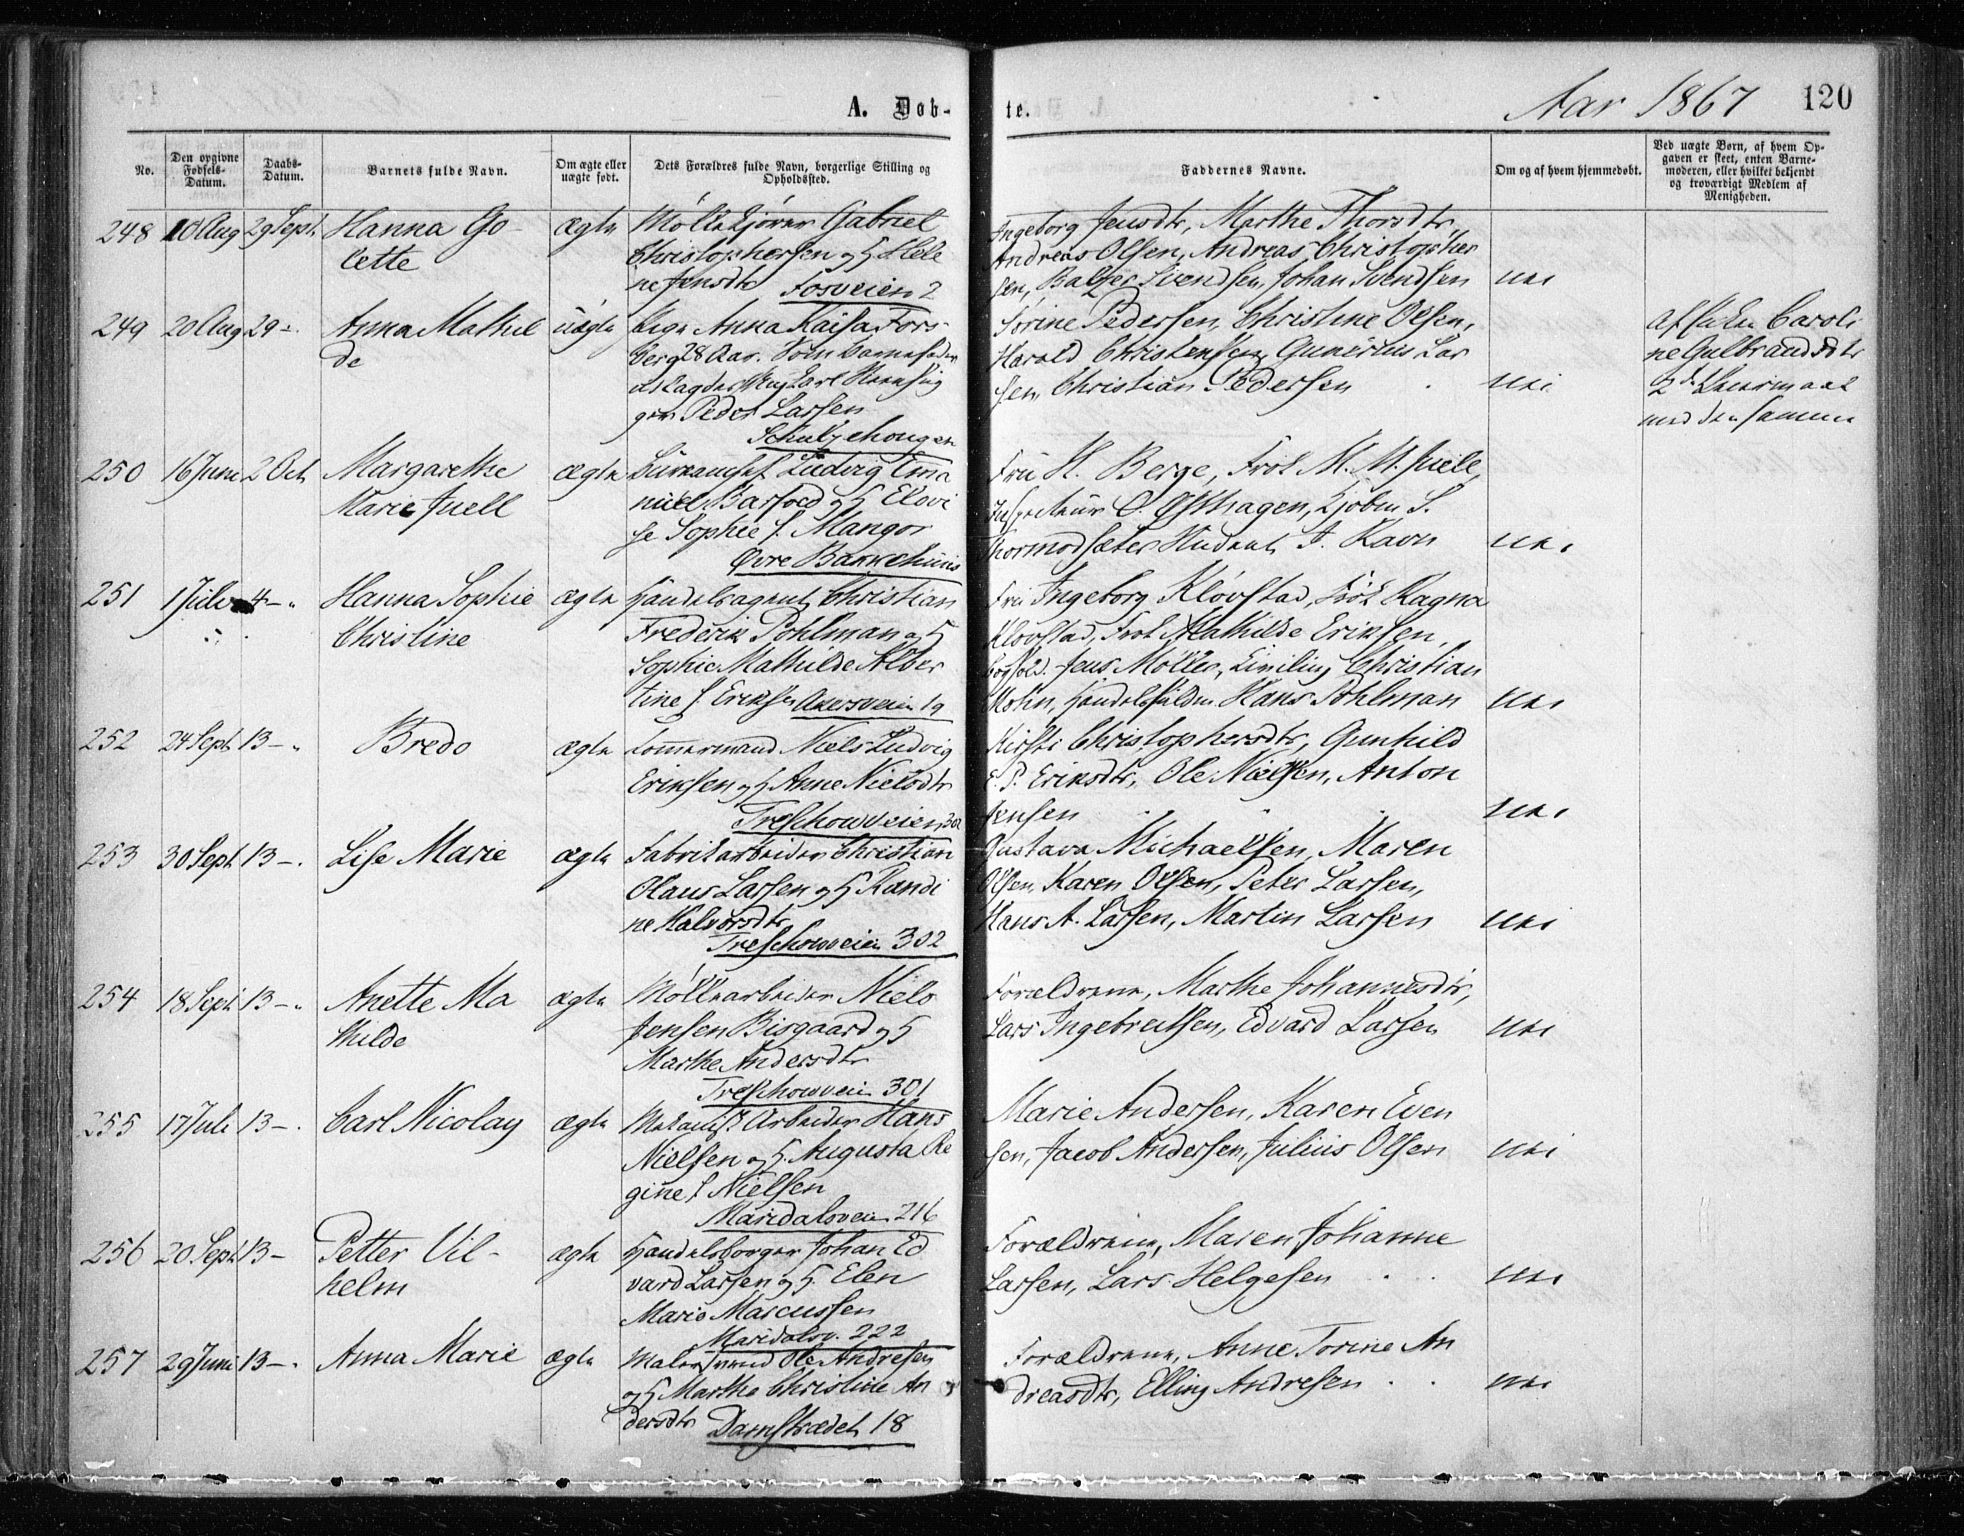 A. Døb-
te.
Aar 1867
120
No.
Den opgivne Fødsels-Datum.
Daabs-Datum.
Barnets fulde Navn.
Om ægte eller uægte født.
Dets Forældres fulde Navn, borgerlige Stilling og Opholdssted.
Faddernes Navne.
Om og af hvem hjemmedøbt.
Ved uægte Børn, af hvem Opgaven er skeet, enten Barnemoderen, eller hvilket bekjendt og troværdigt Medlem af Menigheden.
248 10 Aug 29 Sept. Hanna Go-
lette
ægte
Møllekjører Gabriel
Christophersen og H Hele
ne Jensdtr
Fosveien 2
Ingeborg Jensdtr, Marthe Thorsdtr,
Andreas Olsen, Andreas Christopher
sen, Balzer Svendsen, Johan Svendsen
nei
249 20 Aug 29 -
Anna Mathil
de
uægte
Pige Anna Kaisa Fors-
berg 28 Aar. Som Barnefader
Peder Larsen
Schulzehougen
Sørine Pedersen, Christine Olsen,
Harald Christensen, Gunerius Lar
sen, Christian Pedersen
nei
Caroli
ne Gulbrandsdtr
2det Leiermaal
med den samme
250 16 Juni 2 Oct
Margarethe
Marie Juell
ægte
Bureauchef Ludvig Ema
nuel Barfoed og H Elovi
se Sophie f. Mangor
Øvre Bakkehuus
Fru H. Berge, Frøk M. M. Juell,
O. Østhagen, Kjøbm S.
Thormodsæter Student J. Ravn
nei
251 1 Juli 4 -
Hanna Sophie
Christine
ægte
Handelsagent Christian
Frederik Pohlman og H
Sophie Mathilde Alber
tine f. Eriksen Akersveien 19
Fru Ingeborg Kløvstad, Frøk Ragna
Kløvstad, Frøk Mathilde Eriksen,
Jens Møller, Christian
Handelsfuldm Hans Pohlman
nei
252 24 Sept 13 -
Bredo
ægte
Tømmermand Niels Ludvig
Eriksen og H Anne Nielsdtr
Treschowveien 302
Kirsti Christophersdtr, Gunhild
E. P. Eriksdtr, Ole Nielsen, Anton
Jensen
nei
253 30 Sept 13 -
Lise Marie
ægte
Fabrikarbeider Christian
Olaus Larsen og H Randi
ne Halvorsdtr
Treschowveien 302
Gustava Michaelsen, Maren
Olsen, Karen Olsen, Peter Larsen,
Hans A. Larsen, Martin Larsen
nei
254 18 Sept 13 -
Anette Ma
thilde
ægte
Møllearbeider Niels
Jensen Bisgaard og H
Marthe Andersdtr
Treschowveien 301
Forældrene, Marthe Johannesdtr,
Lars Ingebretsen, Edvard Larsen
nei
255 17 Juli 13 -
Carl Nicolay
ægte
Mekanisk Arbeider Hans
Nielsen og H. Augusta Re
gine f. Nielsen
Maridalsveien 216
Marie Andersen, Karen Even
sen, Jacob Andersen, Julius Olsen
nei
256 20 Sept 13 -
Petter Vil-
helm
ægte
Handelsborger Johan Ed
vard Larsen og H. Elen
Marie Marcussen
Maridalsv. 222
Forældrene, Maren Johanne
Larsen, Lars Helgesen
nei
257 29 Juni 13 -
Anna Marie
ægte
Malersvend Ole Andresen
og H Marthe Christine An
dersdtr
Damstrædet 18
Forældrene, Anne Torine An
dreasdtr, Elling Andresen
nei